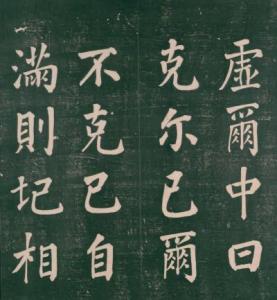 虛爾中曰
克尔已爾
不克已自
滿則圮相